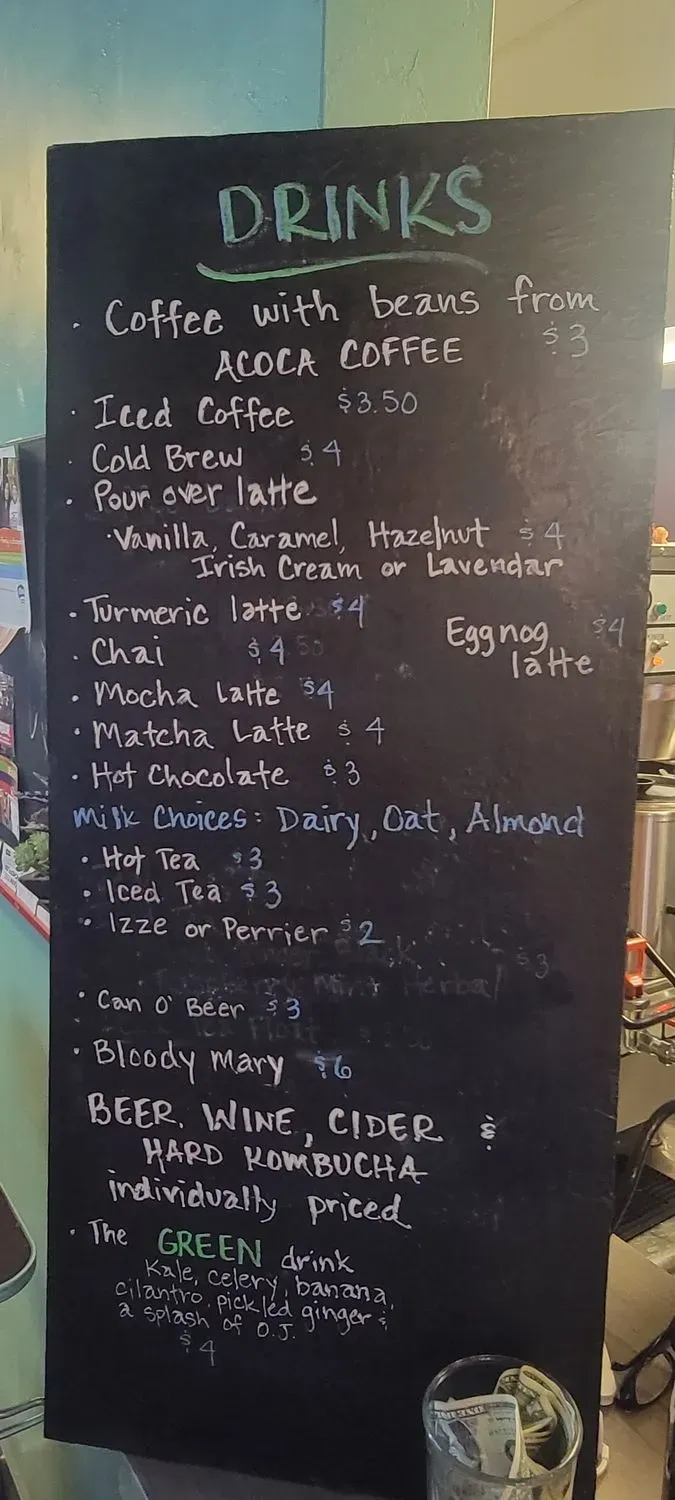 DRINKS
· Coffee with beans from
ACOCA COFFEE $3
· Iced Coffee $3.50
· Cold Brew $4
· Pour over latte
· Vanilla, Caramel, Hazelnut $4
Irish Cream or Lavendar
· Turmeric latte $4
Eggnog $4
latte
· Chai $4
· Mocha Latte $4
· Matcha Latte $4
· Hot Chocolate $3
Milk Choices: Dairy, Oat, Almond
· Hot Tea $3
· Iced Tea $3
· Izze or Perrier $2
$3
Mint Herbal
· Can O' Beer $3
· Bloody Mary $6
BEER, WINE, CIDER &
HARD KOMBUCHA
individually priced
· The GREEN drink
Kale, celery, banana,
cilantro, pickled ginger &
a splash of O.J.
$4